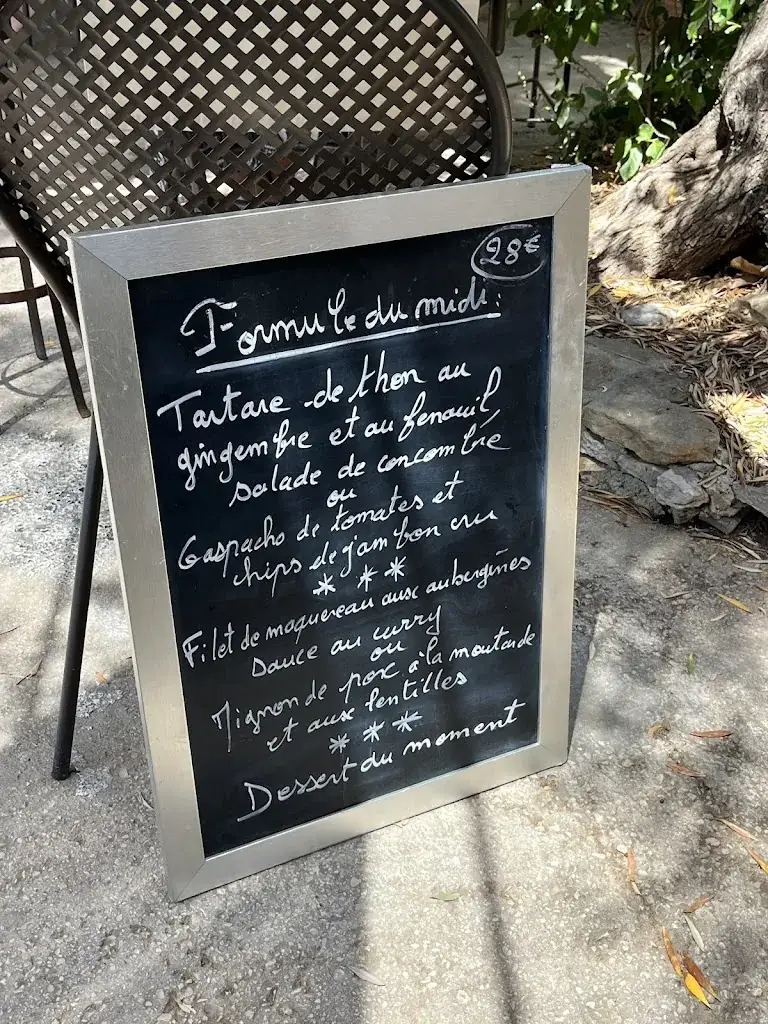 28€
Formule du midi :
Tartare de thon au
gingembre et au fenouil
salade de concombre
ou
Gaspacho de tomates et
chips de jambon cru
* * *
Filet de maquereau aux aubergines
sauce au curry
ou
Mignon de porc à la moutarde
et aux lentilles
* * *
Dessert du moment